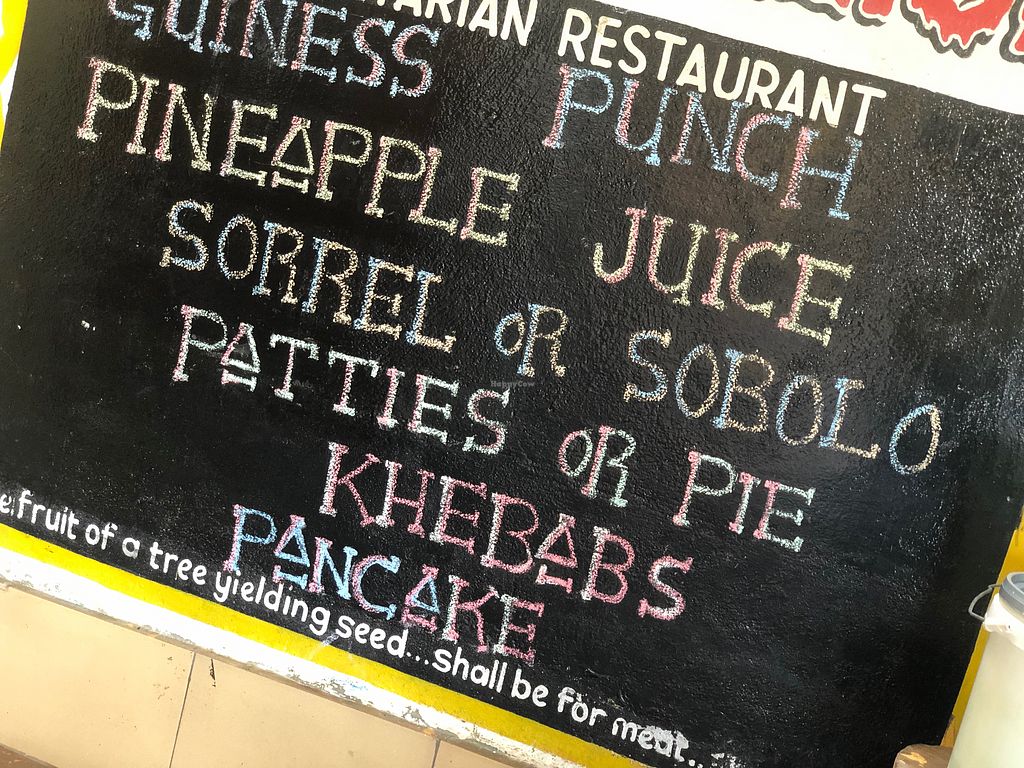 TARIAN RESTAURANT
GUINESS PUNCH
PINEAPPLE JUICE
SORREL OR SOBOLO
PATTIES OR PIE
KHEBABS
PANCAKE
e fruit of a tree yielding seed...shall be for meat..
HappyCow